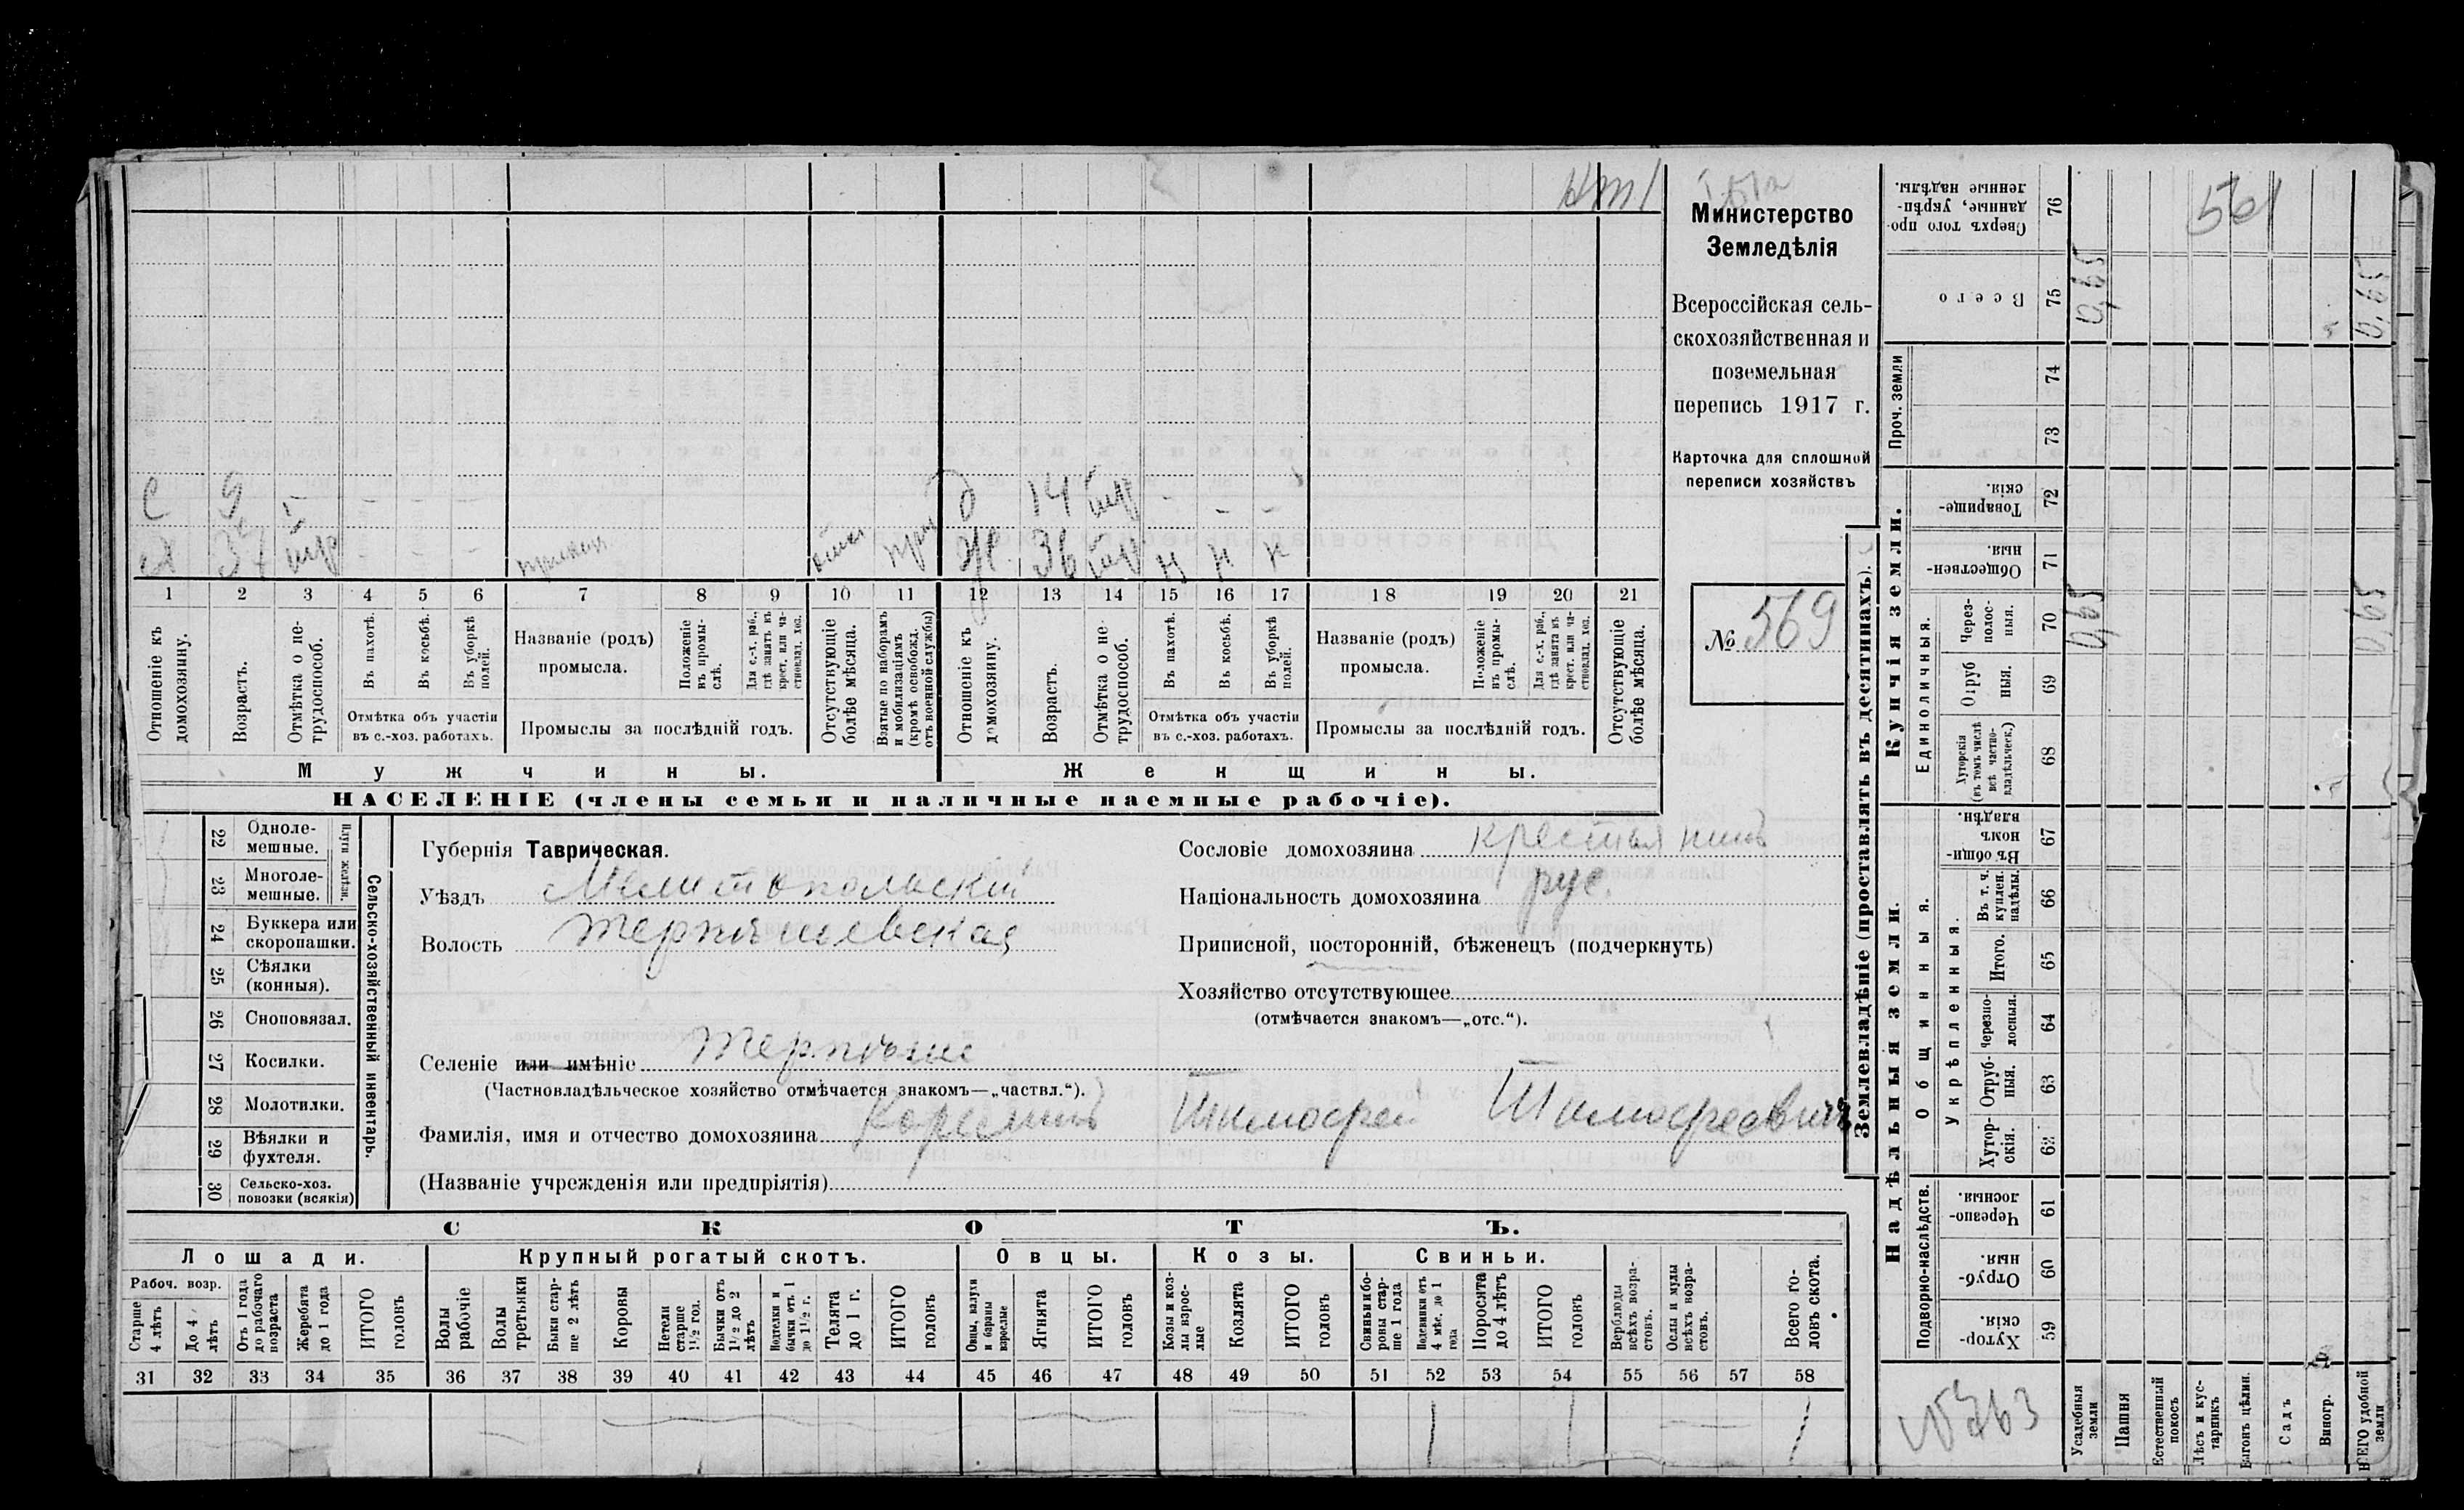 Министерство
Земледѣлія
Всероссійская сель-
скохозяйственная и
поземельная
перепись 1917 г.
Карточка для сплошной
переписи хозяйствъ
№ 569
с 9 - - - - д 14 - - -
37 - - - 36 н н н
1 2 3 4 5 6 7 8 9 10 11 12 13 14 15 16 17 18 19 20 21
Отношеніе къ домохозяину.
Возрастъ.
Отмѣтка о не-трудоспособ.
Въ пахотѣ.
Въ косьбѣ.
Въ уборкѣ полей.
Отмѣтка объ участіи
въ с.-хоз. работахъ.
Названіе (родъ)
промысла.
Положеніе въ промы-слѣ.
Для с.-х. раб., гдѣ занятъ въ крест. или ча-стновлад. хоз.
Промыслы за послѣдній годъ.
Отсутствующіе болѣе мѣсяца.
Взятые по наборамъ и мобилизаціямъ (кромѣ освобожд. отъ военной службы)
Отношеніе къ домохозяину.
Возрастъ.
Отмѣтка о не трудоспособ.
Въ пахотѣ.
Въ косьбѣ.
Въ уборкѣ полей.
Отмѣтка объ участіи
въ с.-хоз. работахъ.
Названіе (родъ)
промысла.
Положеніе въ промы-слѣ.
Для с.-х. раб., гдѣ занята въ крест. или ча-стновлад. хоз.
Промыслы за послѣдній годъ.
Отсутствующіе болѣе мѣсяца.
Мужчины.
Женщины.
НАСЕЛЕНІЕ (члены семьи и наличные наемные рабочіе).
22 Одноле-мешные.
23 Многоле-мешные.
Плуги желѣзн.
24 Буккера или скоропашки.
25 Сѣялки (конныя).
26 Сноповязал.
27 Косилки.
28 Молотилки.
29 Вѣялки и фухтеля.
30 Сельско-хоз. повозки (всякія)
Сельско-хозяйственный инвентарь.
Губернія Таврическая.
Уѣздъ Мелитопольскій
Волость Терпѣньевская
Селеніе или имѣніе Терпѣніе
(Частновладѣльческое хозяйство отмѣчается знакомъ—„частвл.“).
Фамилія, имя и отчество домохозяина Тимофей Тимофеевичъ
(Названіе учрежденія или предпріятія)
Сословіе домохозяина крестьянинъ
Національность домохозяина рус.
Приписной, посторонній, бѣженецъ (подчеркнуть)
Хозяйство отсутствующее
(отмѣчается знакомъ—„отс.“).
СКОТЪ.
Лошади.
Крупный рогатый скотъ.
Овцы.
Козы.
Свиньи.
Рабоч. возр.
Старше 4 лѣтъ
До 4 лѣтъ
Отъ 1 года до рабочаго возраста
Жеребята до 1 года
ИТОГО головъ
Волы рабочіе
Волы третьяки
Быки стар-ше 2 лѣтъ
Коровы
Нетели старше 1½ год.
Бычки отъ 1½ до 2 лѣтъ
Подтелки и бычки отъ 1 до 1½ г.
Телята до 1 г.
ИТОГО головъ
Овцы, валухи и бараны взрослые
Ягнята
ИТОГО головъ
Козы и коз-лы взрос-лые
Козлята
ИТОГО головъ
Свиньи и бо-ровы стар-ше 1 года
Подсвинки отъ 4 мѣс. до 1 года
Поросята до 4 лѣтъ
ИТОГО головъ
Верблюды всѣхъ возра-стовъ.
Ослы и мулы всѣхъ возра-стовъ.
Всего го-ловъ скота.
31 32 33 34 35 36 37 38 39 40 41 42 43 44 45 46 47 48 49 50 51 52 53 54 55 56 57 58
1 1 1
Землевладѣніе (проставлять въ десятинахъ).
Надѣльныя земли.
Купчія земли.
Проч. земли
Подворно-наслѣдств.
Общинныя.
Укрѣпленныя.
Единоличныя.
76 Сверхъ того про-данные, укрѣп-ленные надѣлы.
75 Всего 0,65 0,65
74
73
72 Товарище-скія.
71 Обществен-ныя.
70 Через-полос-ныя. 0,65 0,65
69 Отруб ныя.
68 Хуторскія (въ томъ числѣ всѣ частно-владѣльческ.)
67 Въ общи-номъ владѣн.
66 Въ т. ч. куплен. надѣлы.
65 Итого.
64 Черезпо-лосныя.
63 Отруб-ныя.
62 Хутор-скія.
61 Черезпо-лосныя.
60 Отруб-ныя.
59 Хутор-скія.
561
Усадебныя земли
Пашня
Естественный покосъ
Лѣсъ и кус-тарникъ
Выгонъ цѣлин.
Садъ
Виногр.
удобной земли